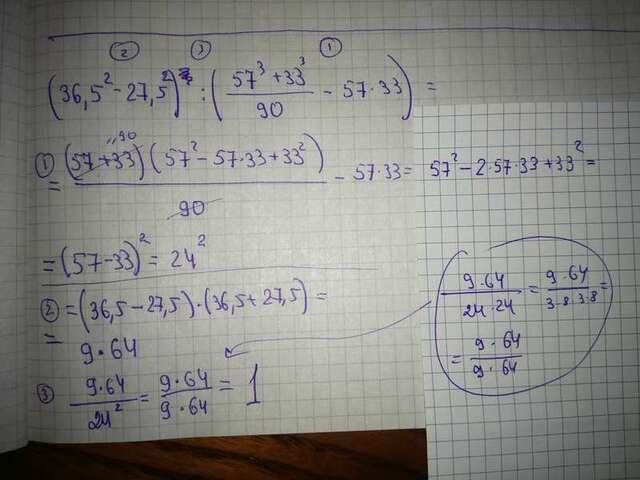 ② ③ ①
(36,5² - 27,5²) : ( (57³ + 33³)/90 - 57·33 ) =
① = "90 (57 + 33)(57² - 57·33 + 33²)/90 - 57·33 = 57² - 2·57·33 + 33² =
= (57 - 33)² = 24²
② = (36,5 - 27,5)·(36,5 + 27,5) =
= 9·64
③ 9·64/24² = 9·64/9·64 = 1
9·64/24·24 = 9·64/3·8·3·8 =
= 9·64/9·64